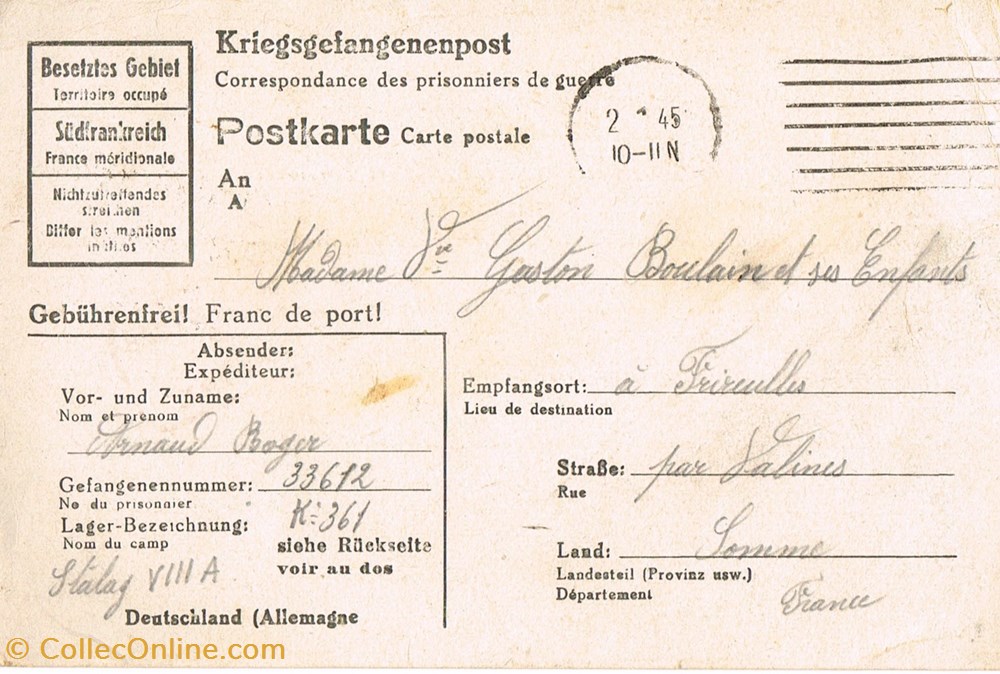 Besetztes Gebiet
Territoire occupé
Südfrankreich
France méridionale
Nichtzutreffendes
streichen
Biffer les mentions
inutiles
Kriegsgefangenenpost
Correspondance des prisonniers de guerre
Postkarte Carte postale
2 45
10-11 N
An
A
Madame Vve Gaston Boulain et ses Enfants
Gebührenfrei! Franc de port!
Absender:
Expéditeur:
Vor- und Zuname:
Nom et prenom
Arnaud Roger
Gefangenennummer: 33612
No du prisonnier
Lager-Bezeichnung: K: 361
Nom du camp
siehe Rückseite
voir au dos
Stalag VIII A
Deutschland (Allemagne
Empfangsort: à Frireulles
Lieu de destination
Straße: par Valines
Rue
Land: Somme
Landesteil (Provinz usw.)
Département
France
© CollecOnline.com